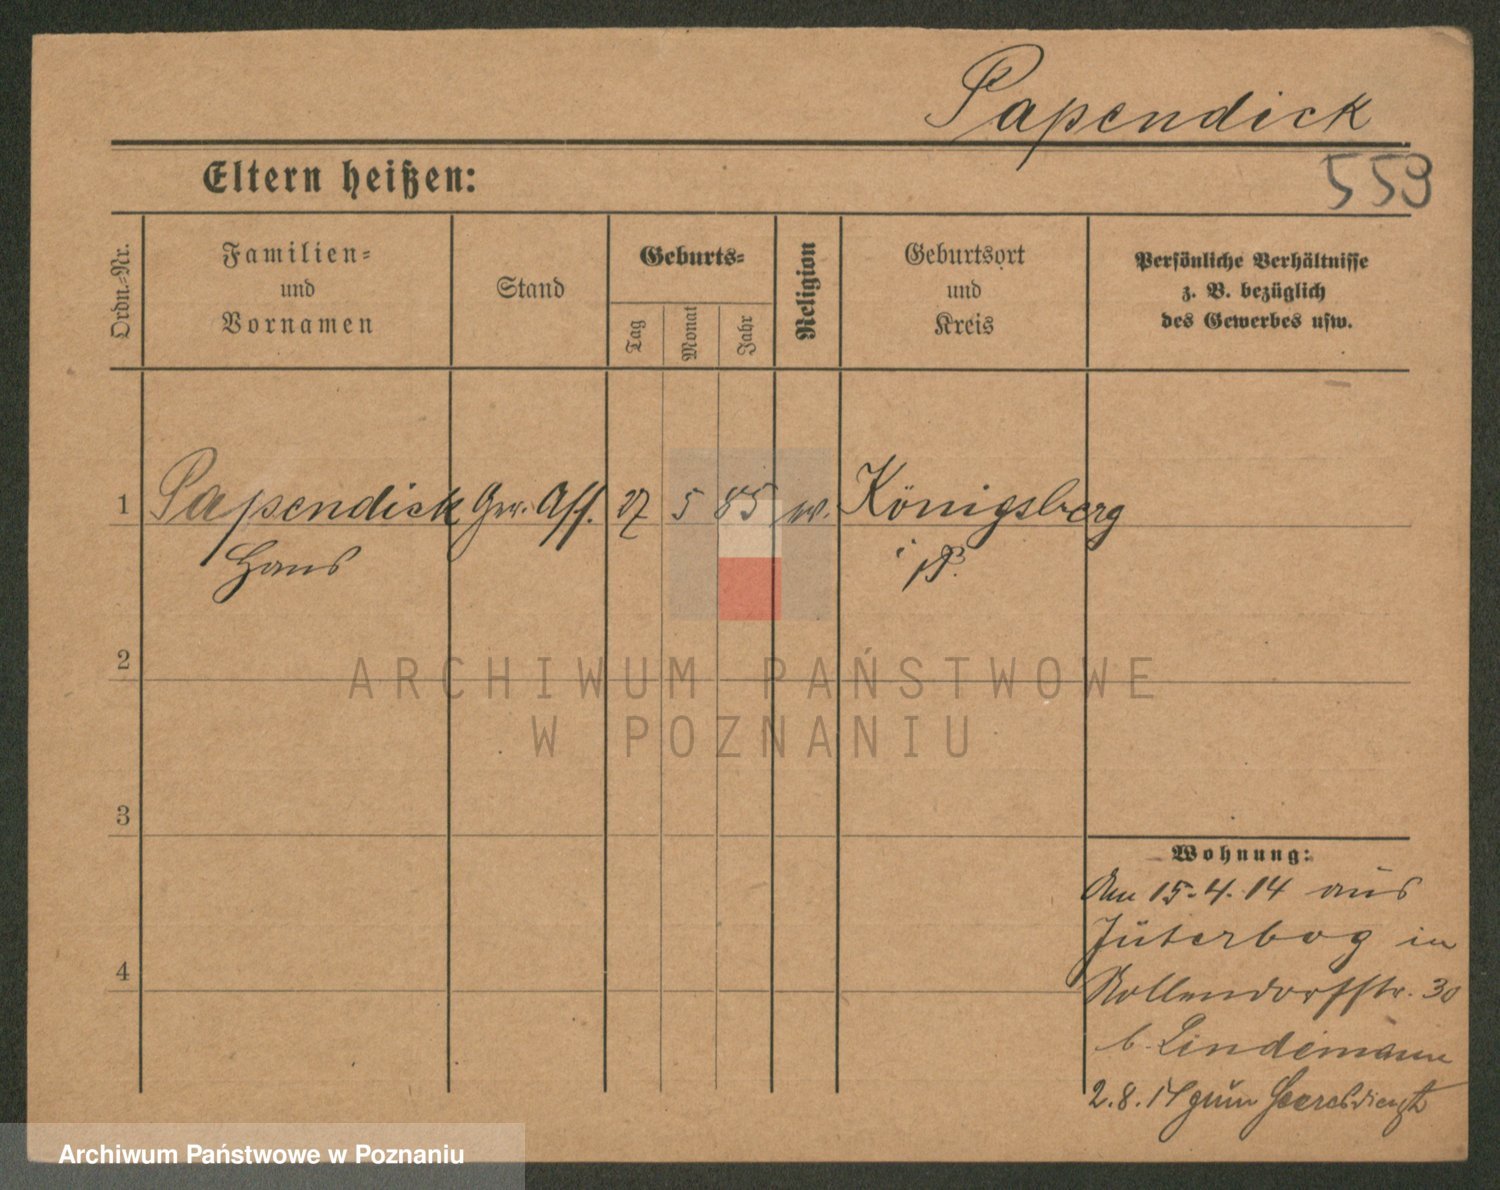 Papendick
559
Eltern heißen:
Ordn.-Nr.
Familien-
und
Vornamen
Stand
Geburts-
Tag
Monat
Jahr
Religion
Geburtsort
und
Kreis
Persönliche Verhältnisse
z. B. bezüglich
des Gewerbes usw.
1 Papendick Ger. Ass. 27 5 85 Königsberg
Hans i/P.
2
ARCHIWUM PAŃSTWOWE
W POZNANIU
3
Wohnung:
Am 15.4.14 aus
Jüterbog in
4
Nollendorfstr. 30
b. Lindemann
2.8.14 zum Heeresdienst
Archiwum Państwowe w Poznaniu